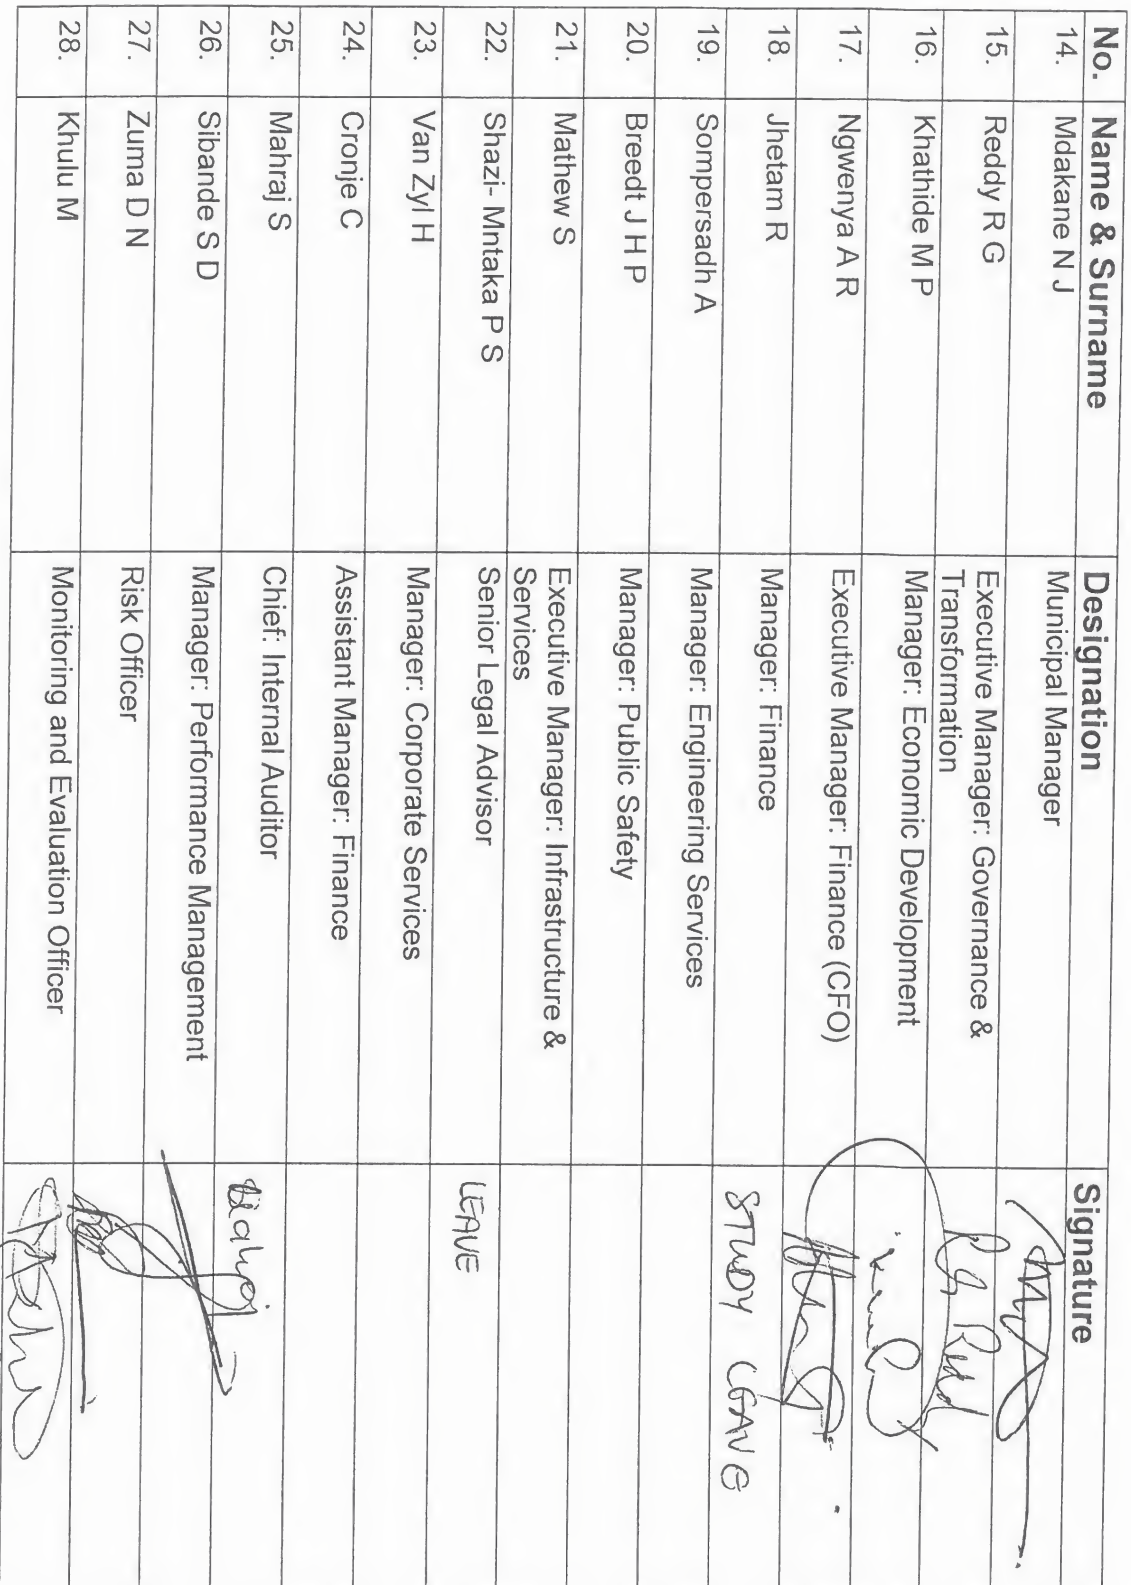 No. Name & Surname Designation Signature
14. Mdakane N J Municipal Manager
15. Reddy R G Executive Manager: Governance &
Transformation
16. Khathide M P Manager: Economic Development
17. Ngwenya A R Executive Manager: Finance (CFO)
18. Jhetam R Manager: Finance STUDY LEAVE
19. Sompersadh A Manager: Engineering Services
20. Breedt J H P Manager: Public Safety
21. Mathew S Executive Manager: Infrastructure &
Services
22. Shazi- Mntaka P S Senior Legal Advisor LEAVE
23. Van Zyl H Manager: Corporate Services
24. Cronje C Assistant Manager: Finance
25. Mahraj S Chief: Internal Auditor
26. Sibande S D Manager: Performance Management
27. Zuma D N Risk Officer
28. Khulu M Monitoring and Evaluation Officer